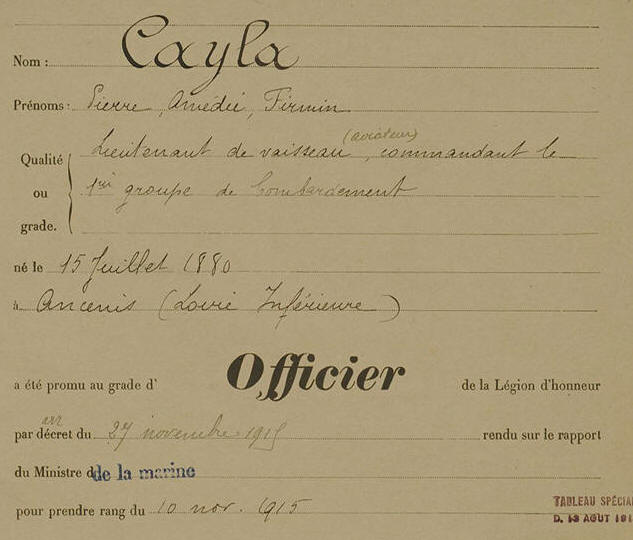 Nom : Cayla
Prénoms : Pierre, Amédée, Firmin
(aviateur)
Qualité ou grade. Lieutenant de vaisseau, commandant le
1er groupe de bombardement
né le 15 Juillet 1880
à Ancenis (Loire Inférieure)
a été promu au grade d'Officier de la Légion d'honneur
arr
par décret du 27 novembre 1915 rendu sur le rapport
du Ministre de la marine
pour prendre rang du 10 nov. 1915
TABLEAU SPÉCIA
D. 13 AOUT 191